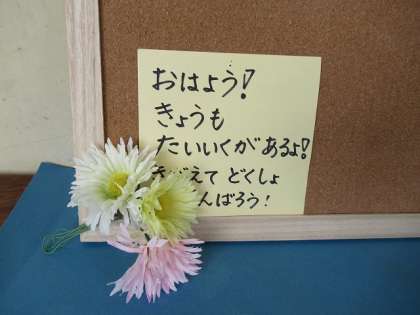 おはよう!
きょうも
たいいくがあるよ!
どくしょ
んばろう!